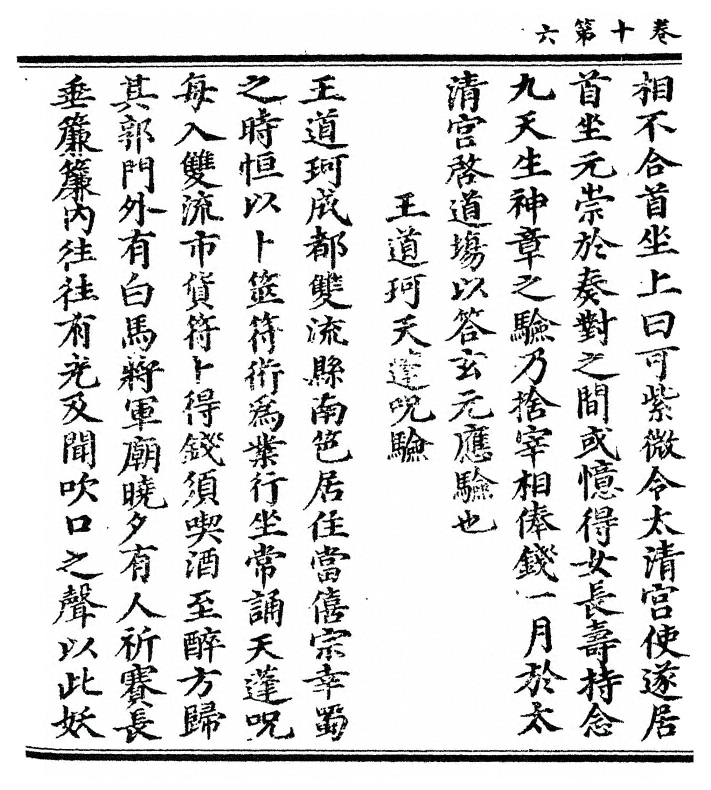 卷十第六
相不合首坐上曰可紫微令太清宮使遂居
首坐元崇於奏對之間或憶得女長壽持念
九天生神章之驗乃捨宰相俸錢一月於太
清宮啓道塲以答玄元應驗也
王道珂天蓬呪驗
王道珂成都雙流縣南笆居住當僖宗幸蜀
之時恒以卜筮符術爲業行坐常誦天蓬呪
每入雙流市貨符卜得錢須喫酒至醉方歸
其郭門外有白馬將軍廟曉夕有人祈賽長
垂簾簾內往往有光及聞吹口之聲以此妖